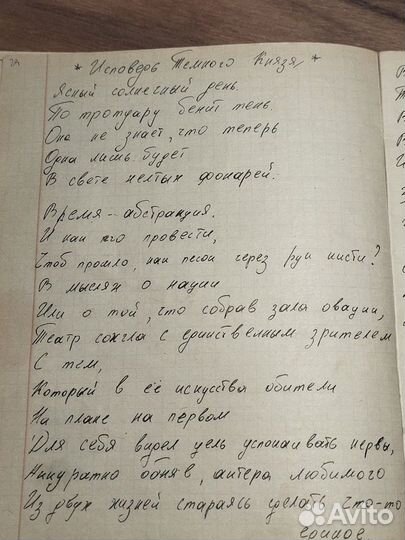 * Исповедь Темного Князя *
Ясный солнечный день.
По тротуару бежит тень.
Она не знает, что теперь
Одна лишь будет
В свете желтых фонарей.
Время – абстракция.
И как его провести,
Чтоб прошло, как песок через руки кисти?
В мыслях о нации
Или о той, что собрав зала овации,
Театр сожгла с единственным зрителем
С тем,
Который в её искусства обители
На плане на первом
Для себя видел цель успокаивать нервы,
Аккуратно обняв, актера любимого
Из двух жизней стараясь сделать что-то
единое
Avito